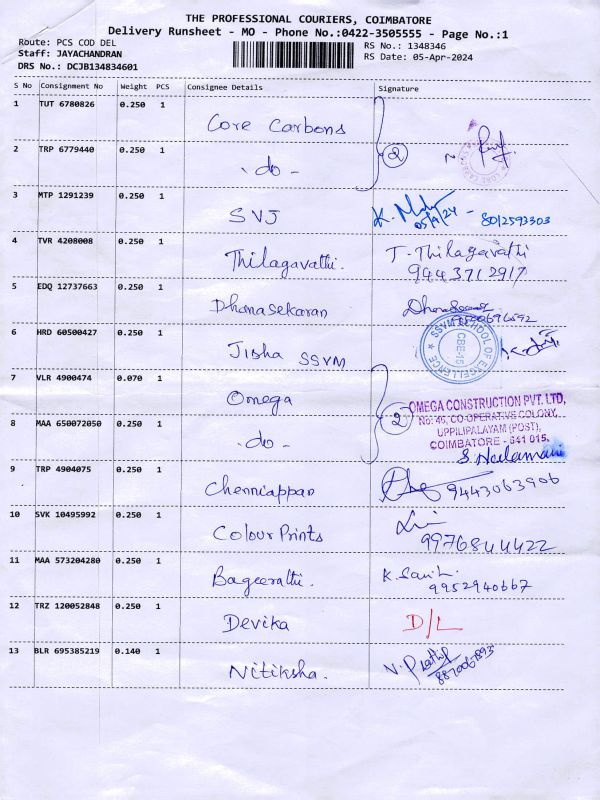 THE PROFESSIONAL COURIERS, COIMBATORE
Delivery Runsheet - MO - Phone No.:0422-3505555 - Page No.:1
Route: PCS COD DEL
Staff: JAYACHANDRAN
DRS No.: DCJB134834601
RS No.: 1348346
RS Date: 05-Apr-2024
S No Consignment No Weight PCS Consignee Details Signature
1 TUT 6780826 0.250 1 Core Carbons
2 TRP 6779440 0.250 1 - do - 2
3 MTP 1291239 0.250 1 SVJ 05/4/24 - 8012593303
4 TVR 4208008 0.250 1 Thilagavathi. T. Thilagavathi
9443712917
5 EDQ 12737663 0.250 1 Dhanasekaran
6 HRD 60500427 0.250 1 Jisha SSVM SSVM SCHOOL OF EXCELLENCE CBE-45
7 VLR 4900474 0.070 1 Omega
8 MAA 650072050 0.250 1 - do - 2
OMEGA CONSTRUCTION PVT. LTD,
No: 46, CO-OPERATIVE COLONY,
UPPILIPALAYAM (POST),
COIMBATORE - 641 015.
9 TRP 4904075 0.250 1 Chenniappan 9443063906
10 SVK 10495992 0.250 1 Colour Prints
9976844422
11 MAA 573204280 0.250 1 Bageerathi.
9952940667
12 TRZ 120052848 0.250 1 Devika D/L
13 BLR 695385219 0.140 1 Nitiksha.